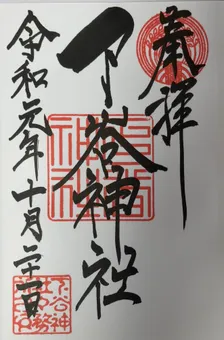 奉拝
下谷神社
令和元年十月二十一日
下谷神社